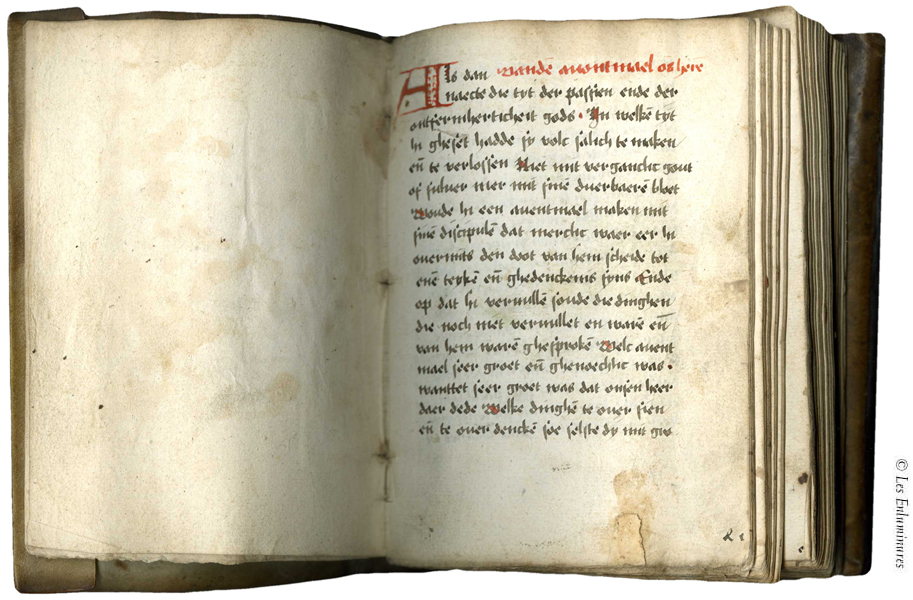 Als dan Vandē auontmael ōs hēre
naecte die tyt der passien ende der
ontfermherticheit gods. In welkē tyt
hi gheset hadde sy volc salich te maken
en̄ te verlossen Niet mit verganclic gout
of suluer mer mit sinē duerbaerē bloet
Woude hi een auentmael maken mit
sinē discipulē dat merclic waer eer hi
ouermits den doot van hem scheide tot
enē teyken en̄ ghedenckenis syns Ende
op dat hi veruullē soude die dinghen
die noch niet veruullet en warē en̄
van hem warē ghesprokē Welc auent
mael seer groet en̄ ghenoechlic was.
wanttet seer groet was dat onsen heer
daer dede Welke dinghē te ouer sien
en̄ te ouer denckē soe selste dy mit gro
© Les Enluminures